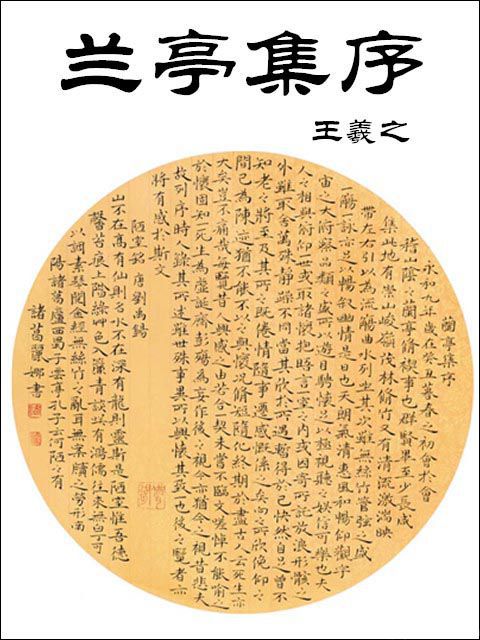 兰亭集序
王羲之
蘭亭集序
永和九年歲在癸丑暮春之初會於會
稽山陰之蘭亭脩禊事也群賢畢至少長咸
集此地有崇山峻嶺茂林脩竹又有清流激湍映
帶左右引以為流觴曲水列坐其次雖無絲竹管弦之盛
一觴一詠亦足以暢叙幽情是日也天朗氣清惠風和暢仰觀宇
宙之大俯察品類之盛所以遊目騁懷足以極視聽之娛信可樂也夫
人之相與俯仰一世或取諸懷抱晤言一室之內或因寄所託放浪形骸之
外雖取舍萬殊靜躁不同當其欣於所遇暫得於己快然自足曾不
知老之將至及其所之既倦情隨事遷感慨係之矣向之所欣俛仰之
間已為陳迹猶不能不以之興懷況脩短隨化終期於盡古人云死生亦
大矣豈不痛哉每覽昔人興感之由若合一契未嘗不臨文嗟悼不能喻之
於懷固知一死生為虛誕齊彭殤為妄作後之視今亦猶今之視昔悲夫
故列序時人錄其所述雖世殊事異所以興懷其致一也後之覽者亦
將有感於斯文
陋室銘 唐劉禹錫
山不在高有仙則名水不在深有龍則靈斯是陋室惟吾德
馨苔痕上階綠草色入簾青談笑有鴻儒往來無白丁可
以調素琴閱金經無絲竹之亂耳無案牘之勞形南
陽諸葛廬西蜀子雲亭孔子云何陋之有
諸葛麗娜書